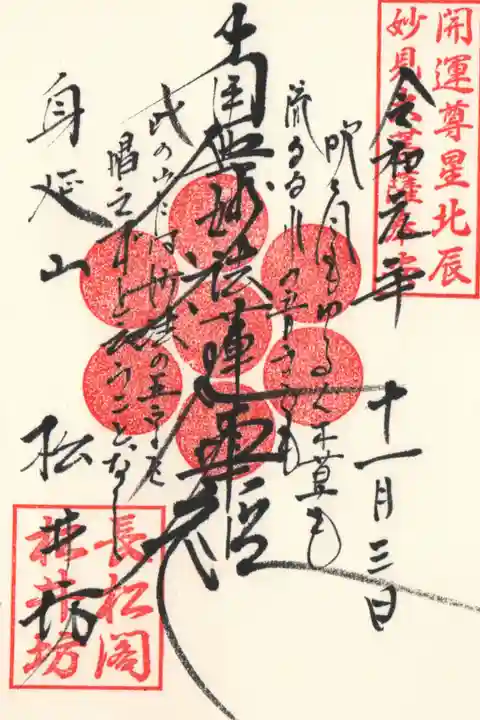 開運尊星北辰
妙見大菩薩
令和元年
十一月三日
吹く風もゆるぐ木草も
流るる水の音までも
南無妙法蓮華経
此の山には妙法の五字を
唱えずと云うことなし
身延山
松井坊
長松閣
松井坊